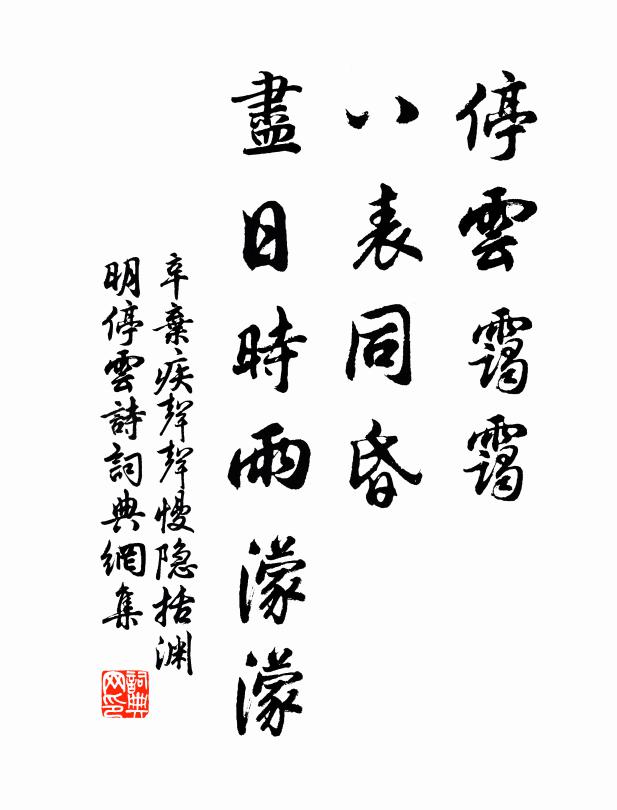 停雲靄靄
八表同昏
盡日時雨濛濛
辛棄疾聲聲慢隐括淵
明停雲詩詞典網集
詞典网印